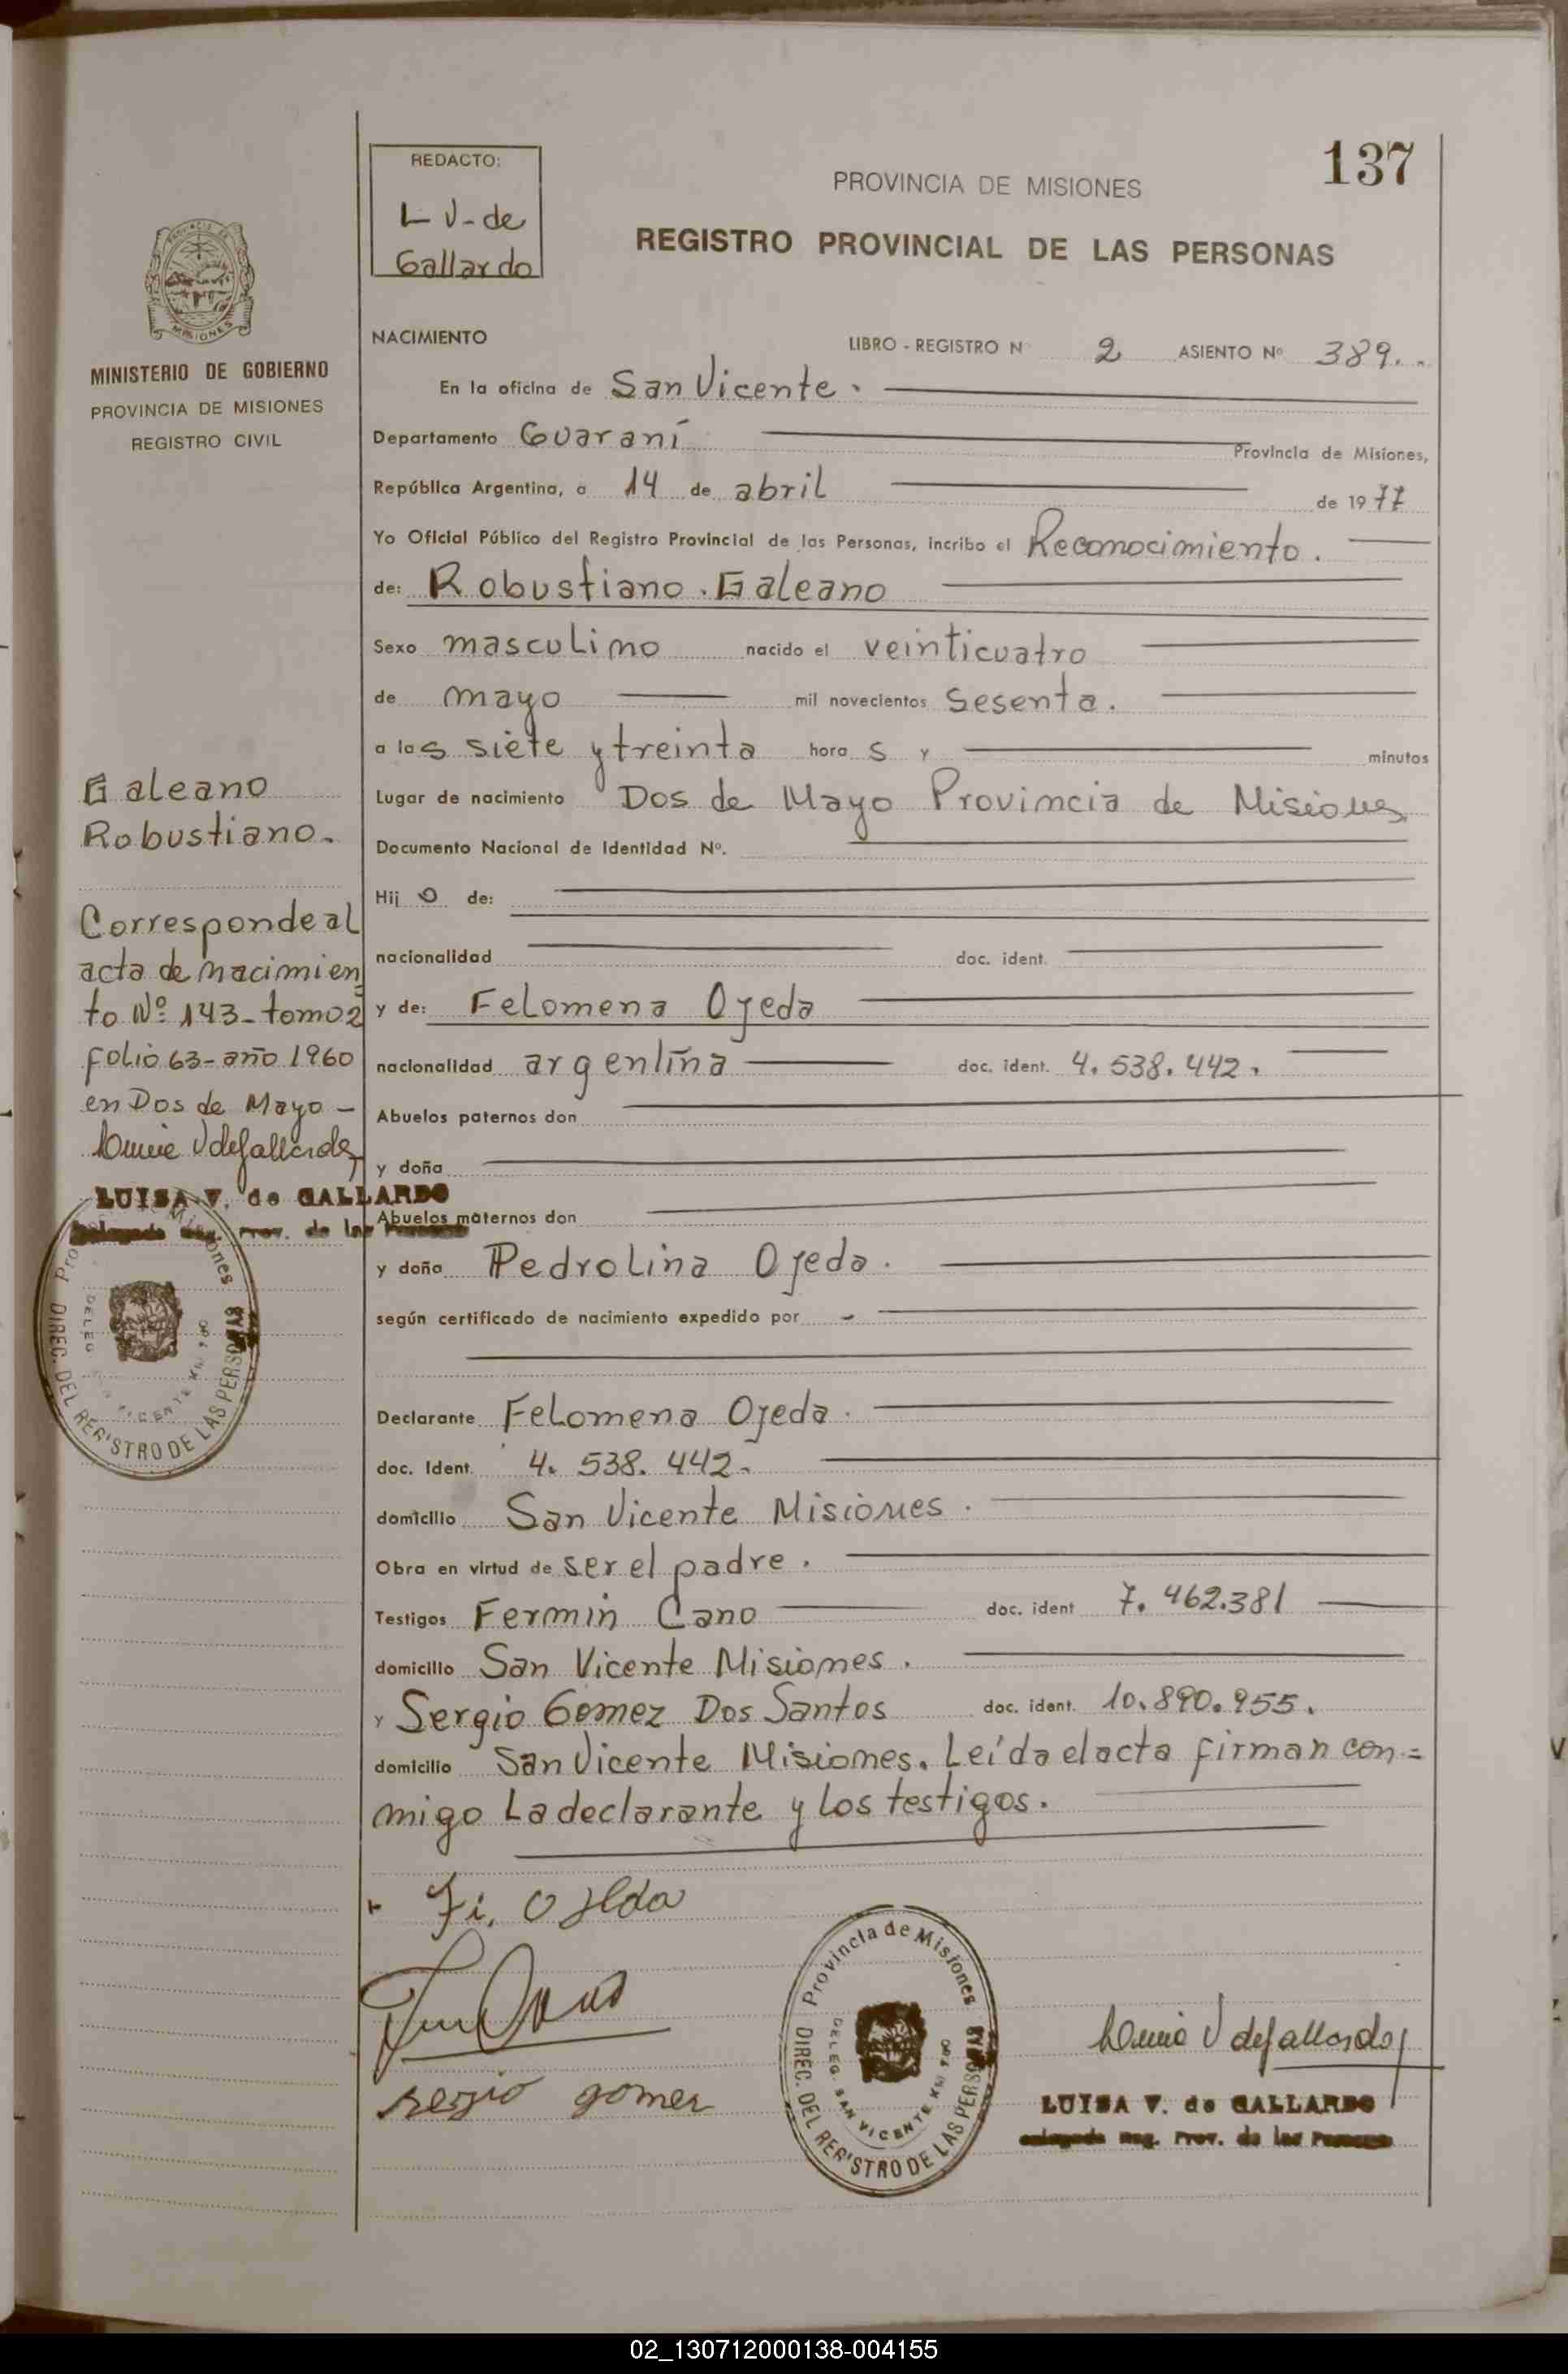 137
REDACTO:
L V-de
Gallardo
PROVINCIA DE MISIONES
REGISTRO PROVINCIAL DE LAS PERSONAS
MISIONES
MINISTERIO DE GOBIERNO
PROVINCIA DE MISIONES
REGISTRO CIVIL
NACIMIENTO LIBRO - REGISTRO N 2 ASIENTO Nº 389..
En la oficina de San Vicente.
Departamento Guaraní Provincia de Misiones,
República Argentina, a 14 de abril de 1977
Yo Oficial Público del Registro Provincial de las Personas, incribo el Reconocimiento.
de: Robustiano Galeano
Sexo masculino nacido el veinticuatro
de mayo mil novecientos sesenta.
a las siete y treinta horas y minutos
Lugar de nacimiento Dos de Mayo Provincia de Misiones
Documento Nacional de Identidad Nº.
Hijo de:
nacionalidad doc. ident.
y de: Felomena Ojeda
nacionalidad argentina doc. ident. 4.538.442.
Abuelos paternos don
y doña
Abuelos maternos don
y doña Pedrolina Ojeda.
según certificado de nacimiento expedido por -
Declarante Felomena Ojeda.
doc. Ident. 4. 538. 442-
domicilio San Vicente Misiones.
Obra en virtud de ser el padre.
Testigos Fermin Cano doc. ident 7. 462.381
domicilio San Vicente Misiones.
y Sergio Gomez Dos Santos doc. ident. 10.890.955.
domicilio San Vicente Misiones. Leída el acta firman con=
migo La declarante y los testigos.
Galeano
Robustiano-
Corresponde al
acta de nacimien
to Nº 143-tomo 2
folio 63-año 1960
en Dos de Mayo-
LUISA V. de GALLARDO
Delegada Reg. Prov. de las Personas
Provincia de Misiones
DIREC. DEL REGISTRO DE LAS PERSONAS
DELEG. SAN VICENTE KM 980
Fi. Ojeda
sergio gomez
LUISA V. de GALLARDO
Delegada Reg. Prov. de las Personas
02_130712000138-004155